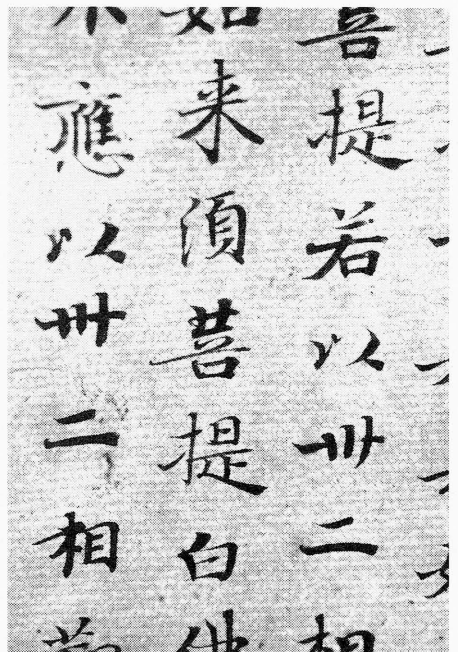 菩提若以卅二相
如来須菩提白佛
不應以卅二相觀